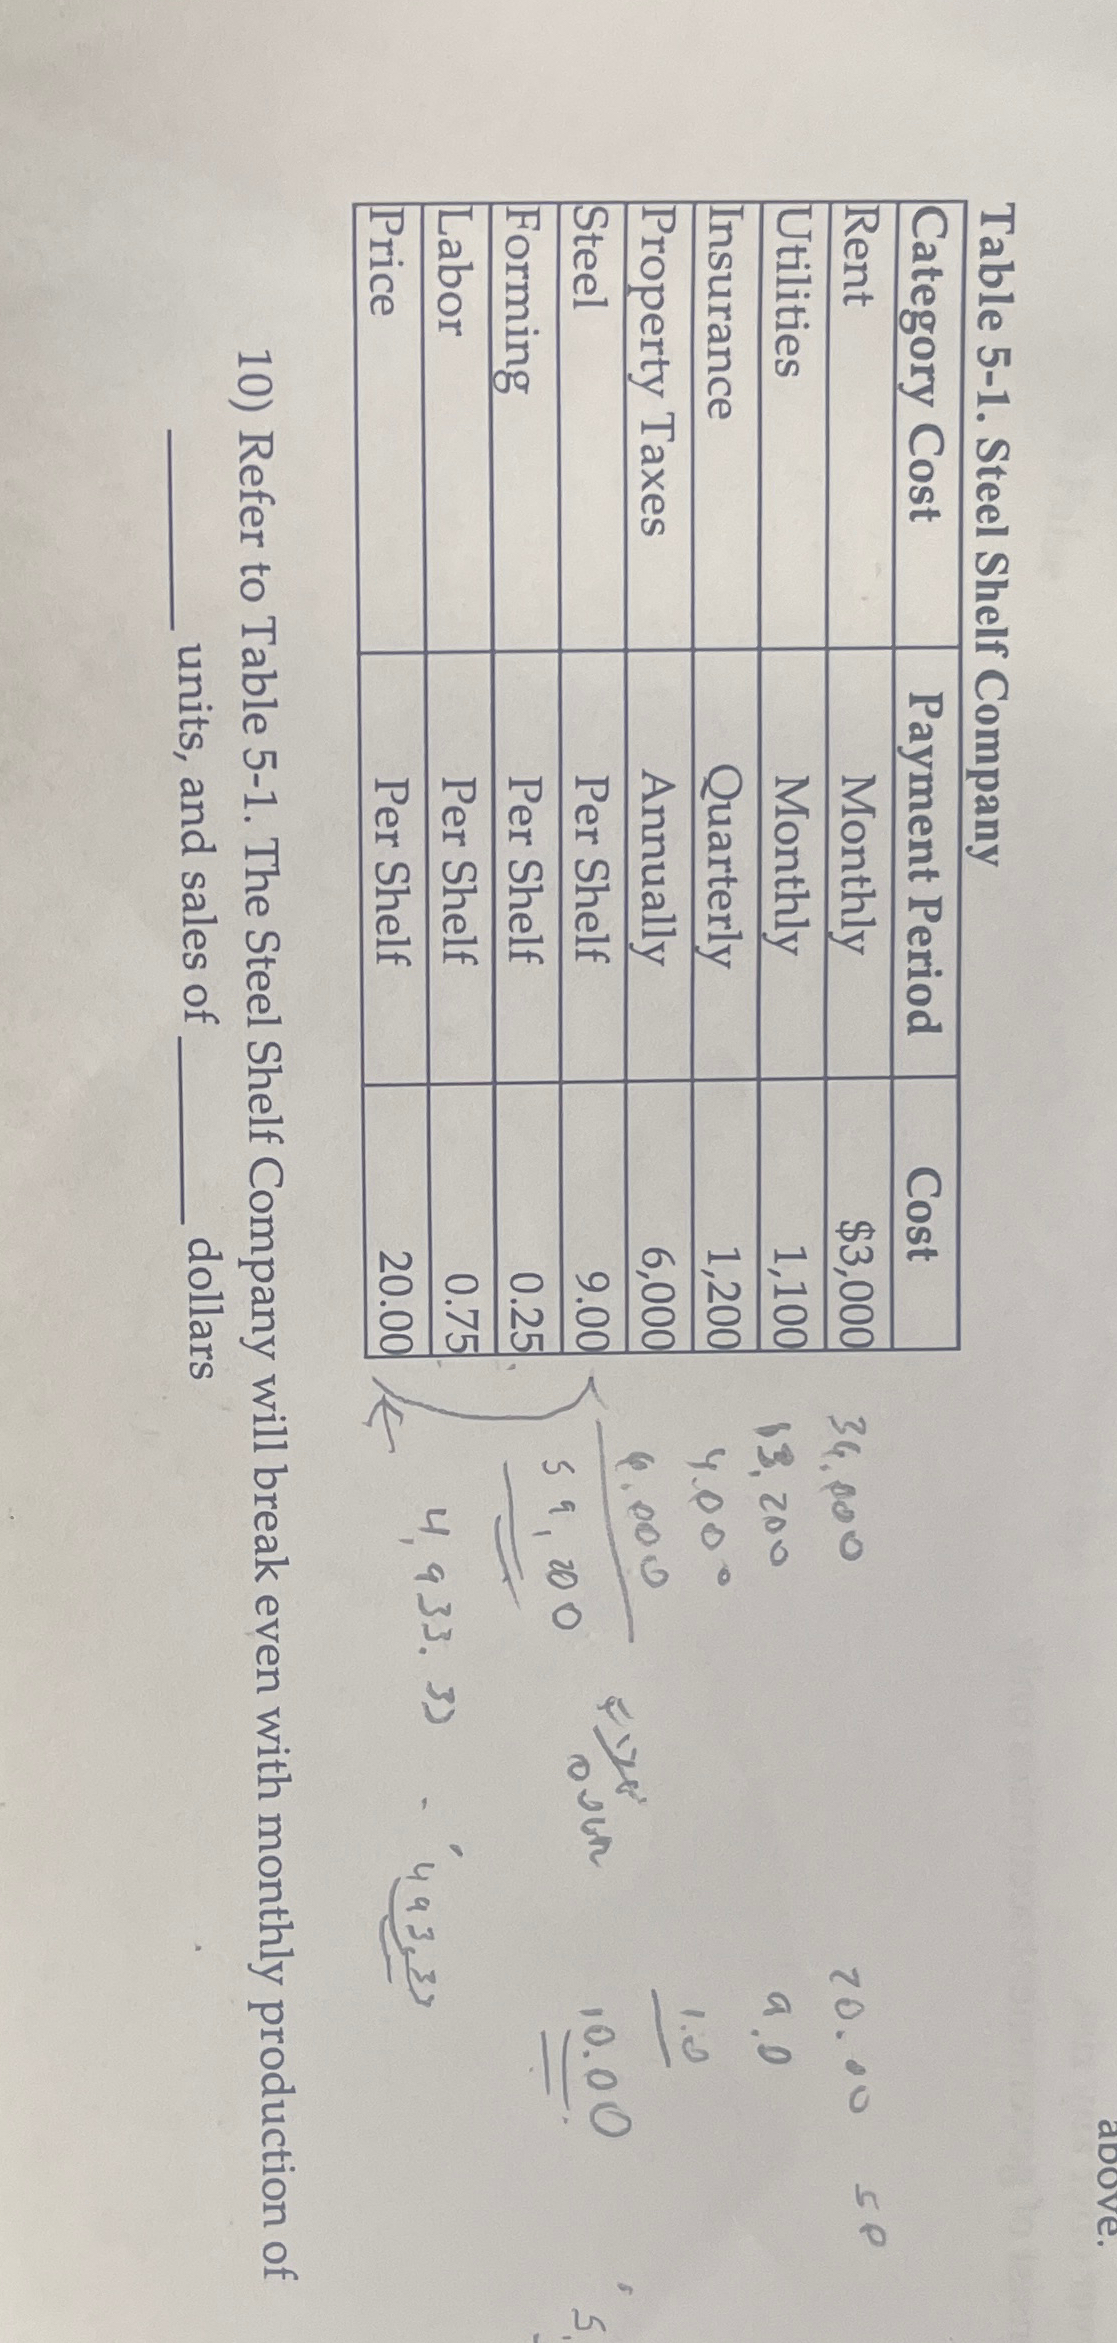 above.
Table 5-1. Steel Shelf Company
Category Cost Payment Period Cost
Rent Monthly $3,000
Utilities Monthly 1,100
Insurance Quarterly 1,200
Property Taxes Annually 6,000
Steel Per Shelf 9.00
Forming Per Shelf 0.25
Labor Per Shelf 0.75
Price Per Shelf 20.00
20.00 SP
13,200 9.0
4,000 1.0
59,200 10.00
4,933.33 493.33
10) Refer to Table 5-1. The Steel Shelf Company will break even with monthly production of
________ units, and sales of ________ dollars